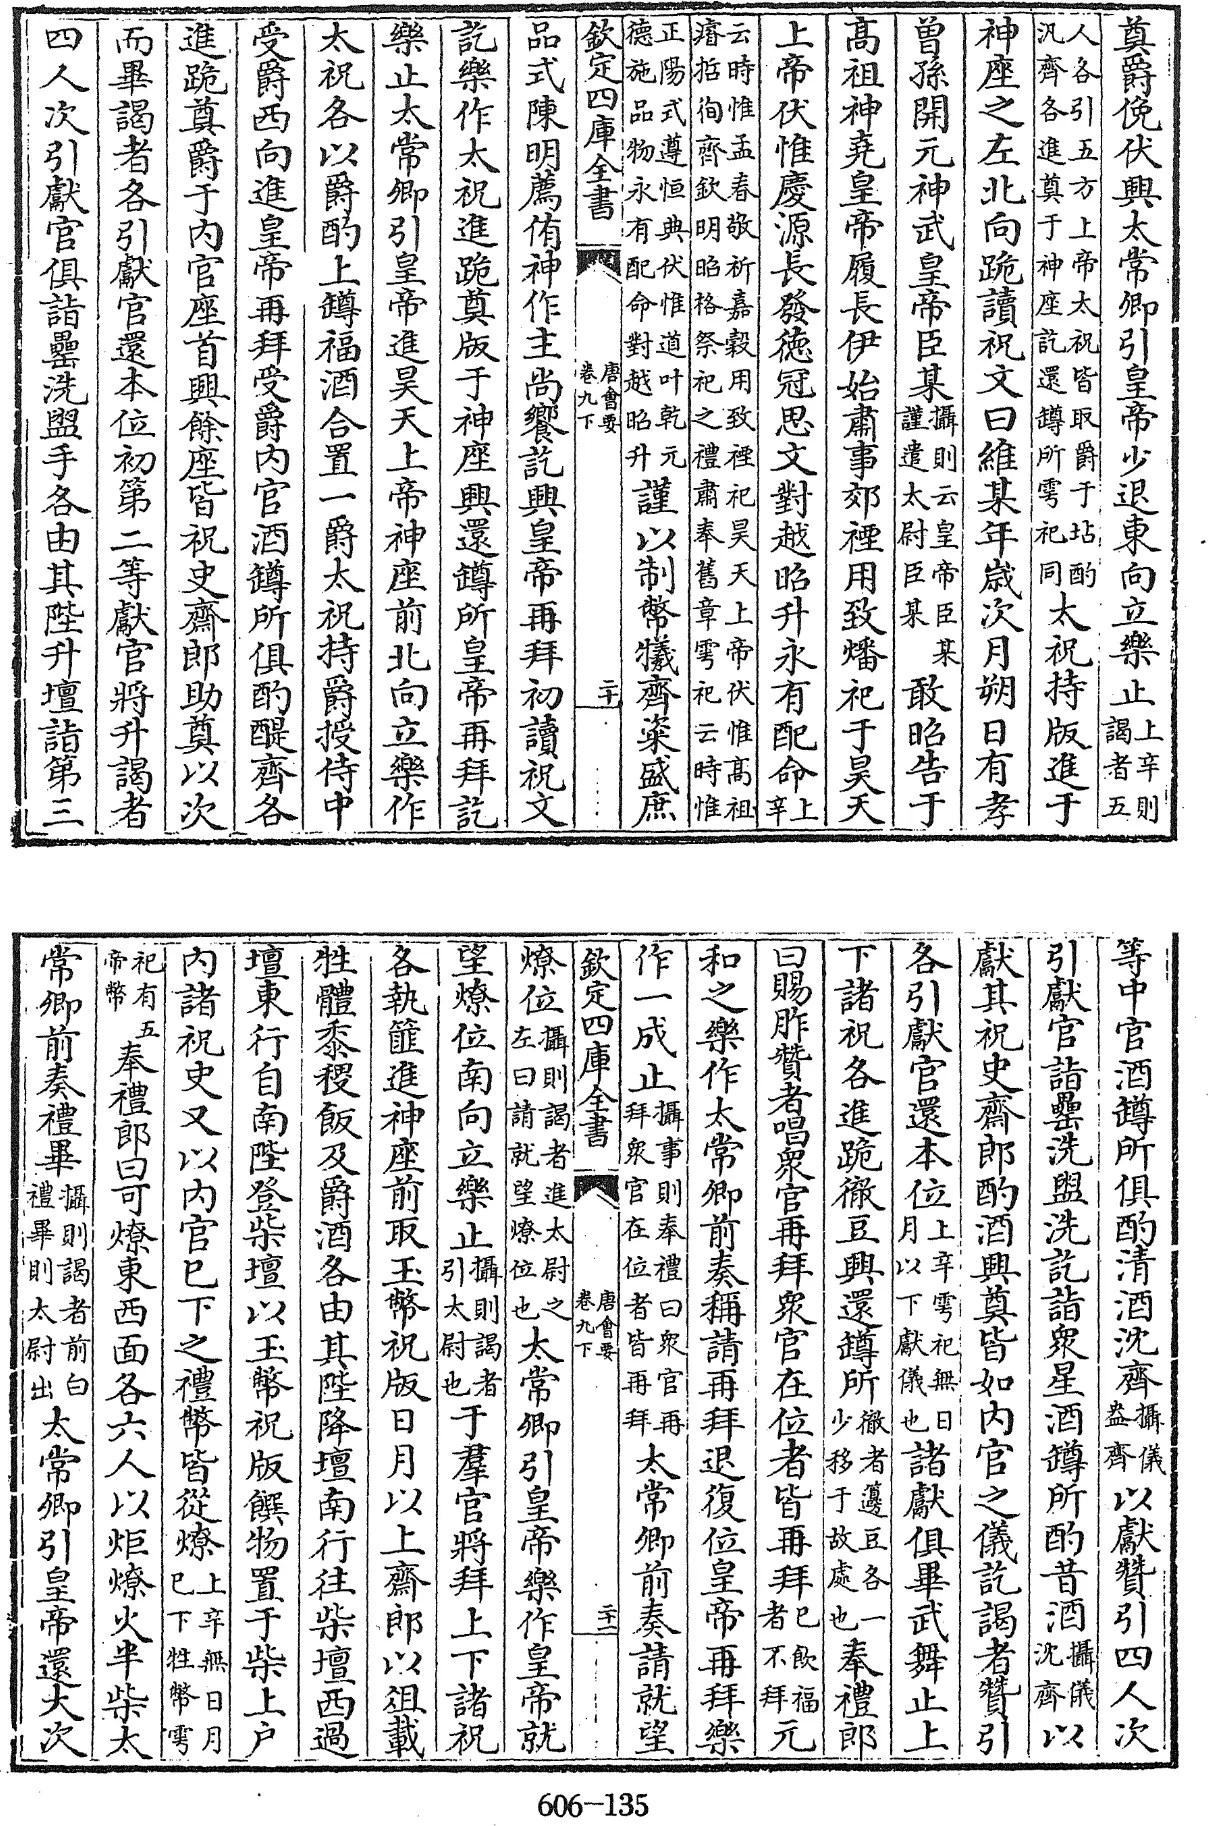 奠爵俛伏興太常卿引皇帝少退東向立樂止上辛則謁者五
人各引五方上帝太祝皆取爵于坫酌汎齊各進奠于神座訖還罇所雩祀同太祝持版進于
神座之左北向跪讀祝文曰維某年嵗次月朔日有孝
曾孫開元神武皇帝臣某攝則云皇帝臣某謹遣太尉臣某敢昭告于
髙祖神堯皇帝履長伊始肅事郊禋用致燔祀于昊天
上帝伏惟慶源長發德冠思文對越昭升永有配命上辛
云時惟孟春敬祈嘉穀用致禋祀昊天上帝伏惟髙祖濬哲徇齊欽明昭格祭祀之禮肅奉舊章雩祀云時惟
正陽式遵恒典伏惟道叶乾元德施品物永有配命對越昭升謹以制幣犧齊粢盛庶
欽定四庫全書 唐會要卷九下 二十
品式陳明薦侑神作主尚饗訖興皇帝再拜初讀祝文
訖樂作太祝進跪奠版于神座興還罇所皇帝再拜訖
樂止太常卿引皇帝進昊天上帝神座前北向立樂作
太祝各以爵酌上罇福酒合置一爵太祝持爵授侍中
受爵西向進皇帝再拜受爵内官酒罇所俱酌醍齊各
進跪奠爵于内官座首興餘座皆祝史齋郎助奠以次
而畢謁者各引獻官還本位初第二等獻官將升謁者
四人次引獻官俱詣罍洗盥手各由其陛升壇詣第三
等中官酒罇所俱酌清酒沈齊攝儀盎齊以獻贊引四人次
引獻官詣罍洗盥洗訖詣衆星酒罇所酌昔酒攝儀沈齊以
獻其祝史齋郎酌酒興奠皆如内官之儀訖謁者贊引
各引獻官還本位上辛雩祀無日月以下獻儀也諸獻俱畢武舞止上
下諸祝各進跪徹豆興還罇所徹者籩豆各一少移于故處也奉禮郎
曰賜胙贊者唱衆官再拜衆官在位者皆再拜已飲福者不拜元
和之樂作太常卿前奏稱請再拜退復位皇帝再拜樂
作一成止攝事則奉禮曰衆官再拜衆官在位者皆再拜太常卿前奏請就望
欽定四庫全書 唐會要卷九下 二十一
燎位攝則謁者進太尉之左曰請就望燎位也太常卿引皇帝樂作皇帝就
望燎位南向立樂止攝則謁者引太尉也于羣官將拜上下諸祝
各執篚進神座前取玉幣祝版日月以上齋郎以俎載
牲體黍稷飯及爵酒各由其陛降壇南行往柴壇西過
壇東行自南陛登柴壇以玉幣祝版饌物置于柴上户
内諸祝史又以内官已下之禮幣皆從燎上辛無日月已下牲幣雩
祀有五帝幣奉禮郎曰可燎東西面各六人以炬燎火半柴太
常卿前奏禮畢攝則謁者前白禮畢則太尉出太常卿引皇帝還大次
606-135